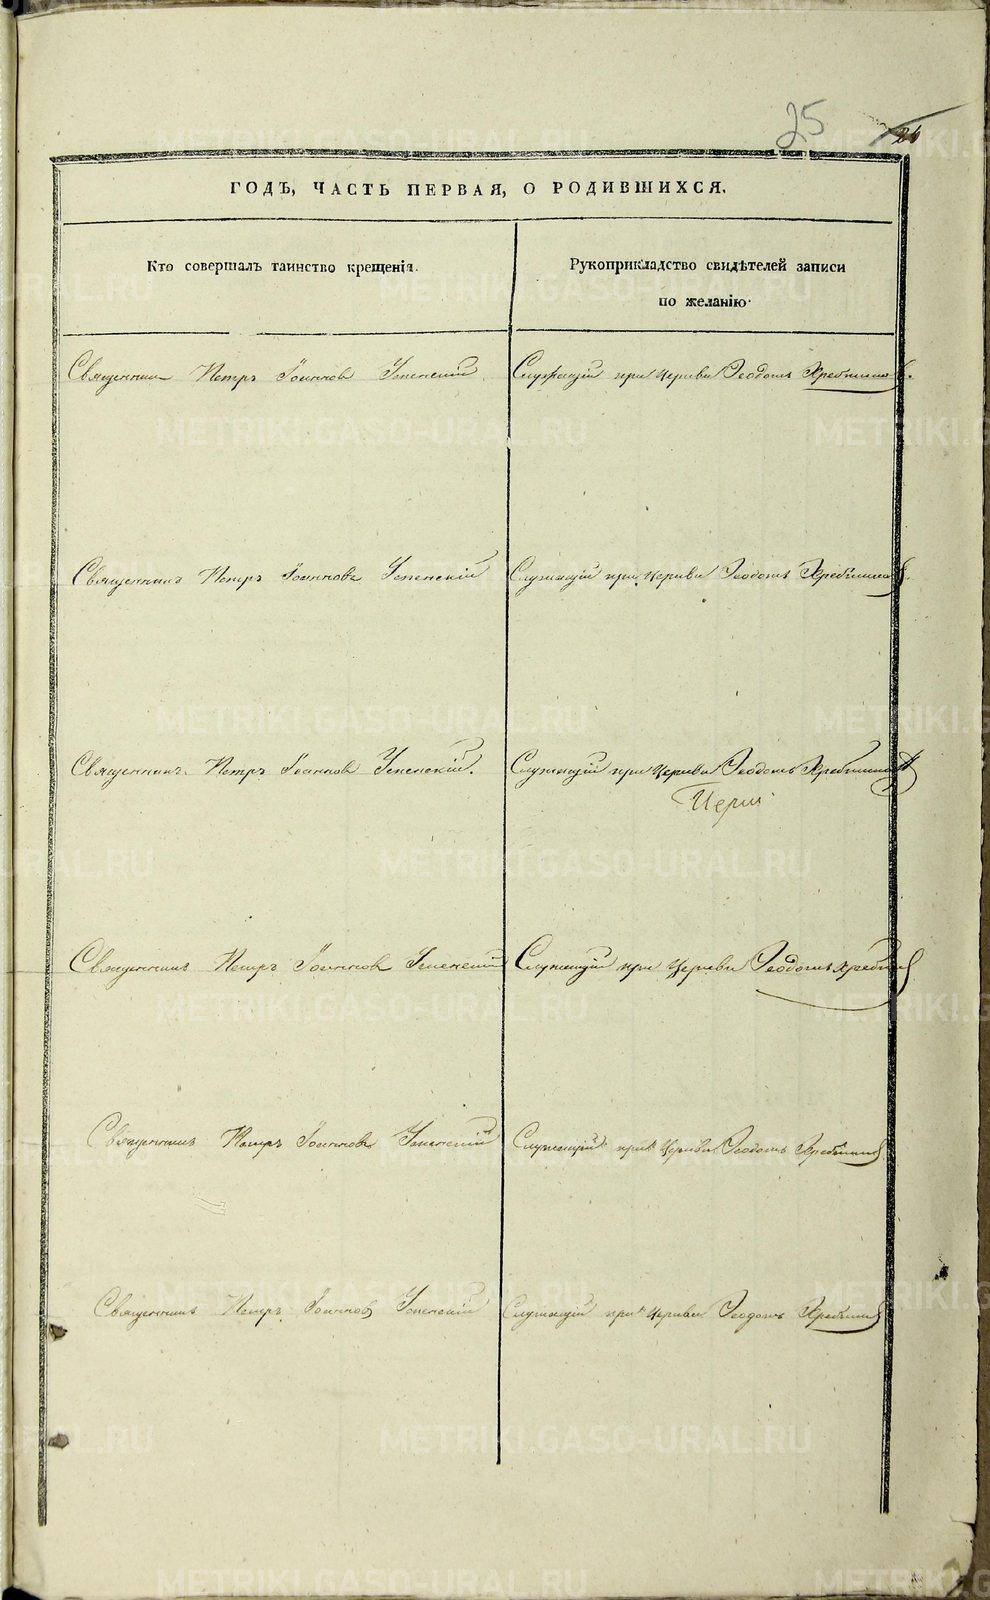 25
26
ГОДЪ, ЧАСТЬ ПЕРВАЯ, О РОДИВШИХСЯ.
Кто совершалъ таинство крещенія.
Рукоприкладство свидѣтелей записи
по желанію.
Священникъ Петръ Іоанновъ Успенскій. Служащій при Церкви Ѳеодотъ
Священникъ Петръ Іоанновъ Успенскій Служащій при Церкви Ѳеодотъ
Священникъ Петръ Іоанновъ Успенскій. Служащій при Церкви Ѳеодотъ
Священникъ Петръ Іоанновъ Успенскій Служащій при Церкви Ѳеодотъ
Священникъ Петръ Іоанновъ Успенскій Служащій при Церкви Ѳеодотъ
Священникъ Петръ Іоанновъ Успенскій Служащій при Церкви Ѳеодотъ
METRIKI.GASO-URAL.RU